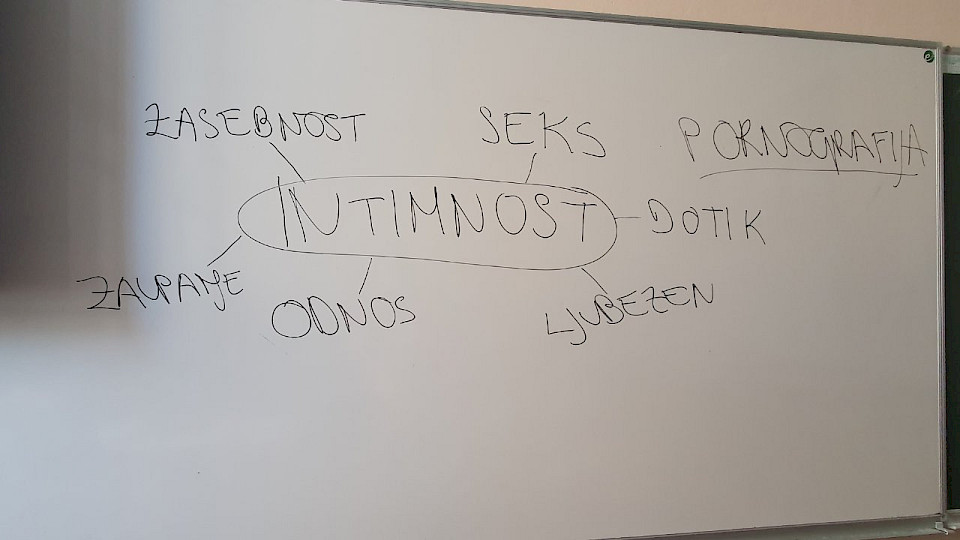 ZASEBNOST
SEKS
PORNOGRAFIJA
INTIMNOST
DOTIK
ZAUPANJE
ODNOS
LJUBEZEN